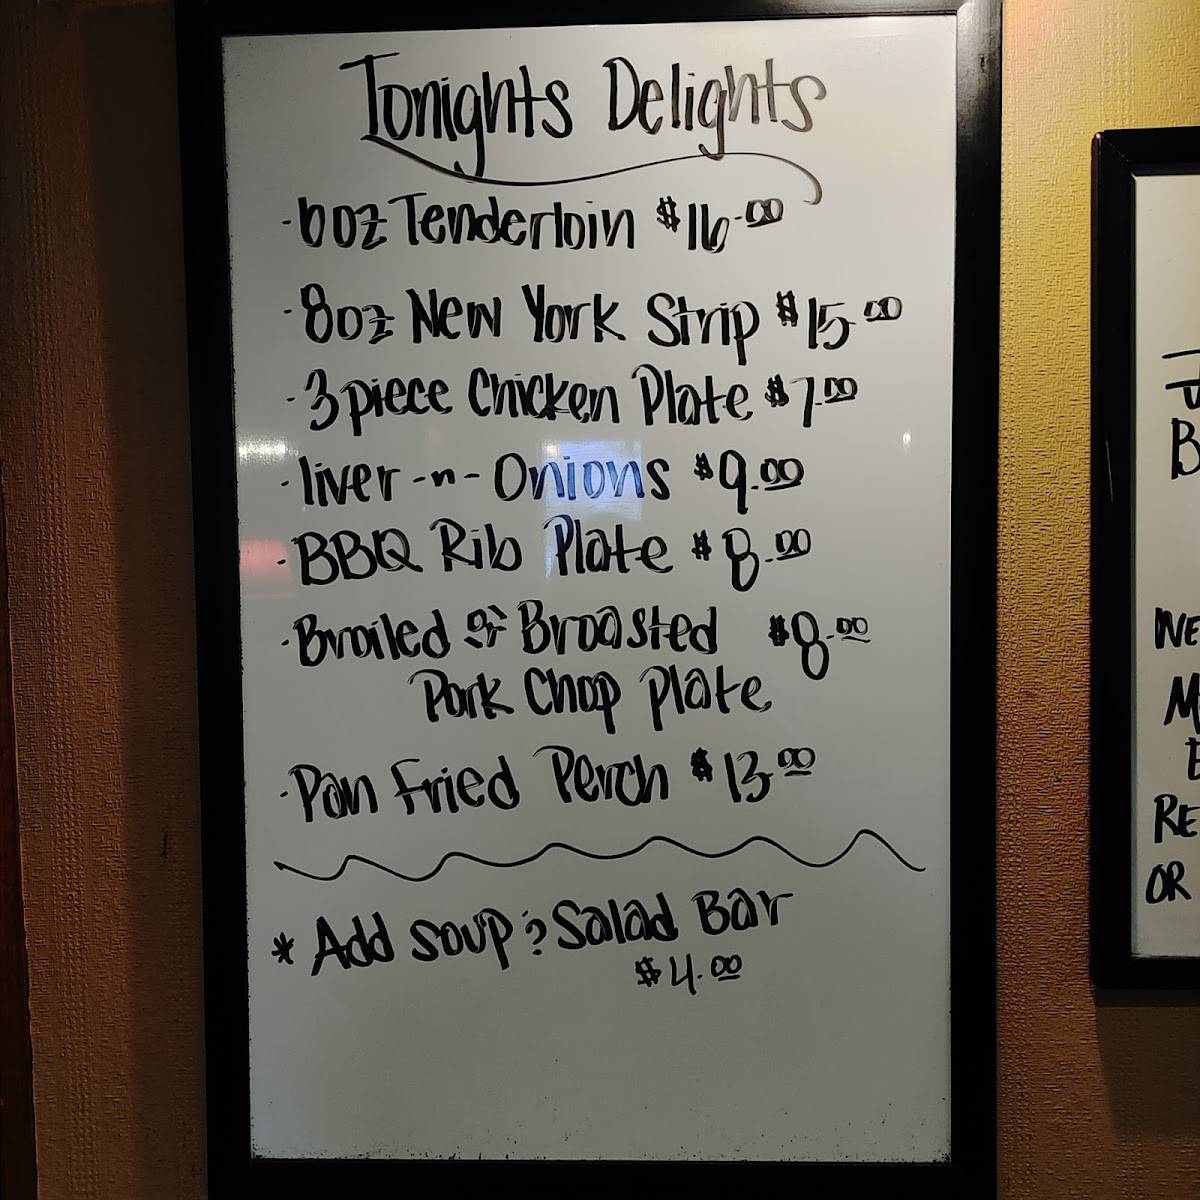 Tonights Delights
·6oz Tenderloin $16.00
·8oz New York Strip $15.00
·3 piece Chicken Plate $7.00
·liver -n- Onions $9.00
·BBQ Rib Plate $8.00
·Broiled or Broasted $8.00
Pork Chop Plate
·Pan Fried Perch $13.00
* Add soup & Salad Bar
$4.00
B
NE
M
E
RE
OR